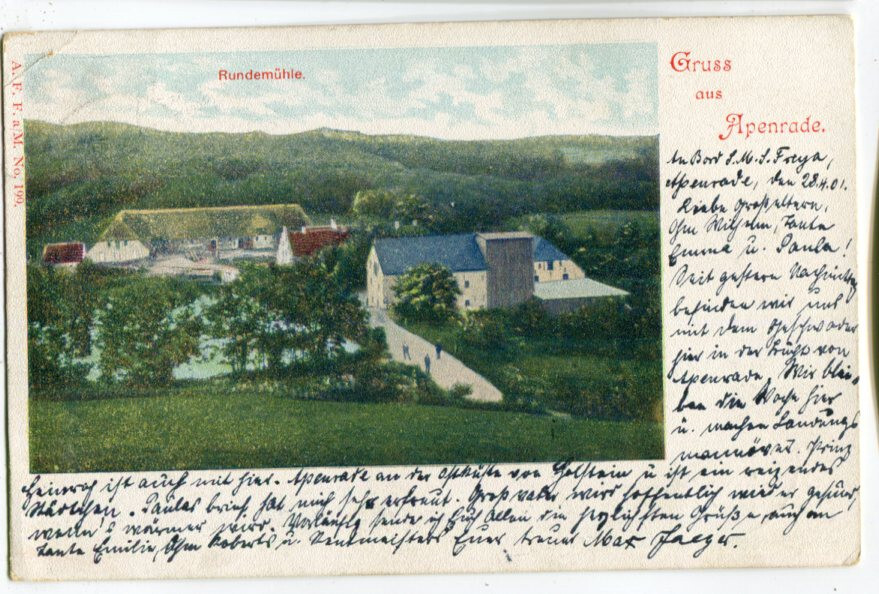 A. F. F. a/M. No, 199.
Rundemühle.
Gruss
aus
Apenrade.
An Bord S. M. S. Freya,
Apenrade, den 28.4.01.
Liebe Großeltern,
Ohm Wilhelm, Tante
Emma u. Paula!
Seit gestern Nachmittag
befinden wir uns
mit dem Geschwader
hier in der Bucht von
Apenrade. Wir blei-
ben die Woche hier
u. machen Landungs
manöver. Prinz
Heinrich ist auch mit hier. Apenrade an der Ostküste von Holstein u ist ein reizendes
Städtchen. Paulas Brief hat mich sehr erfreut. Großvater wird hoffentlich wieder gesund,
wenn's wärmer wird. Vorläufig sende ich Euch Allen die herzlichsten Grüße, auch an
Tante Emilie, Ohm Roberts u. Rentmeisters Euer treuer Max Jaeger.